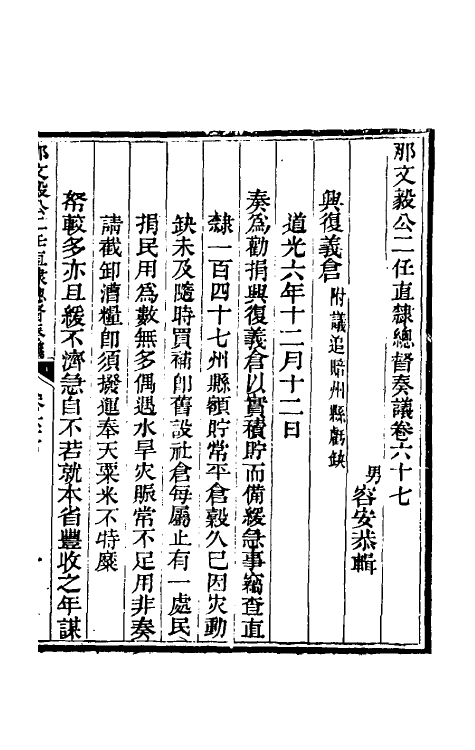 那文毅公二任直隸總督奏議卷六十七
男容安恭輯
興復義倉附議追賠州縣虧缺
道光六年十二月十二日
奏為勸捐興復義倉以實積貯而備緩急事竊查直
隸一百四十七州縣額貯常平倉穀久已因災動
缺未及隨時買補即舊設社倉每屬止有一處民
捐民用為數無多偶遇水旱災賑常不足用非奏
請截卸漕糧即須撥運奉天粟米不特糜
帑較多亦且緩不濟急自不若就本省豐收之年謀
那文毅公二任直隸總督奏議